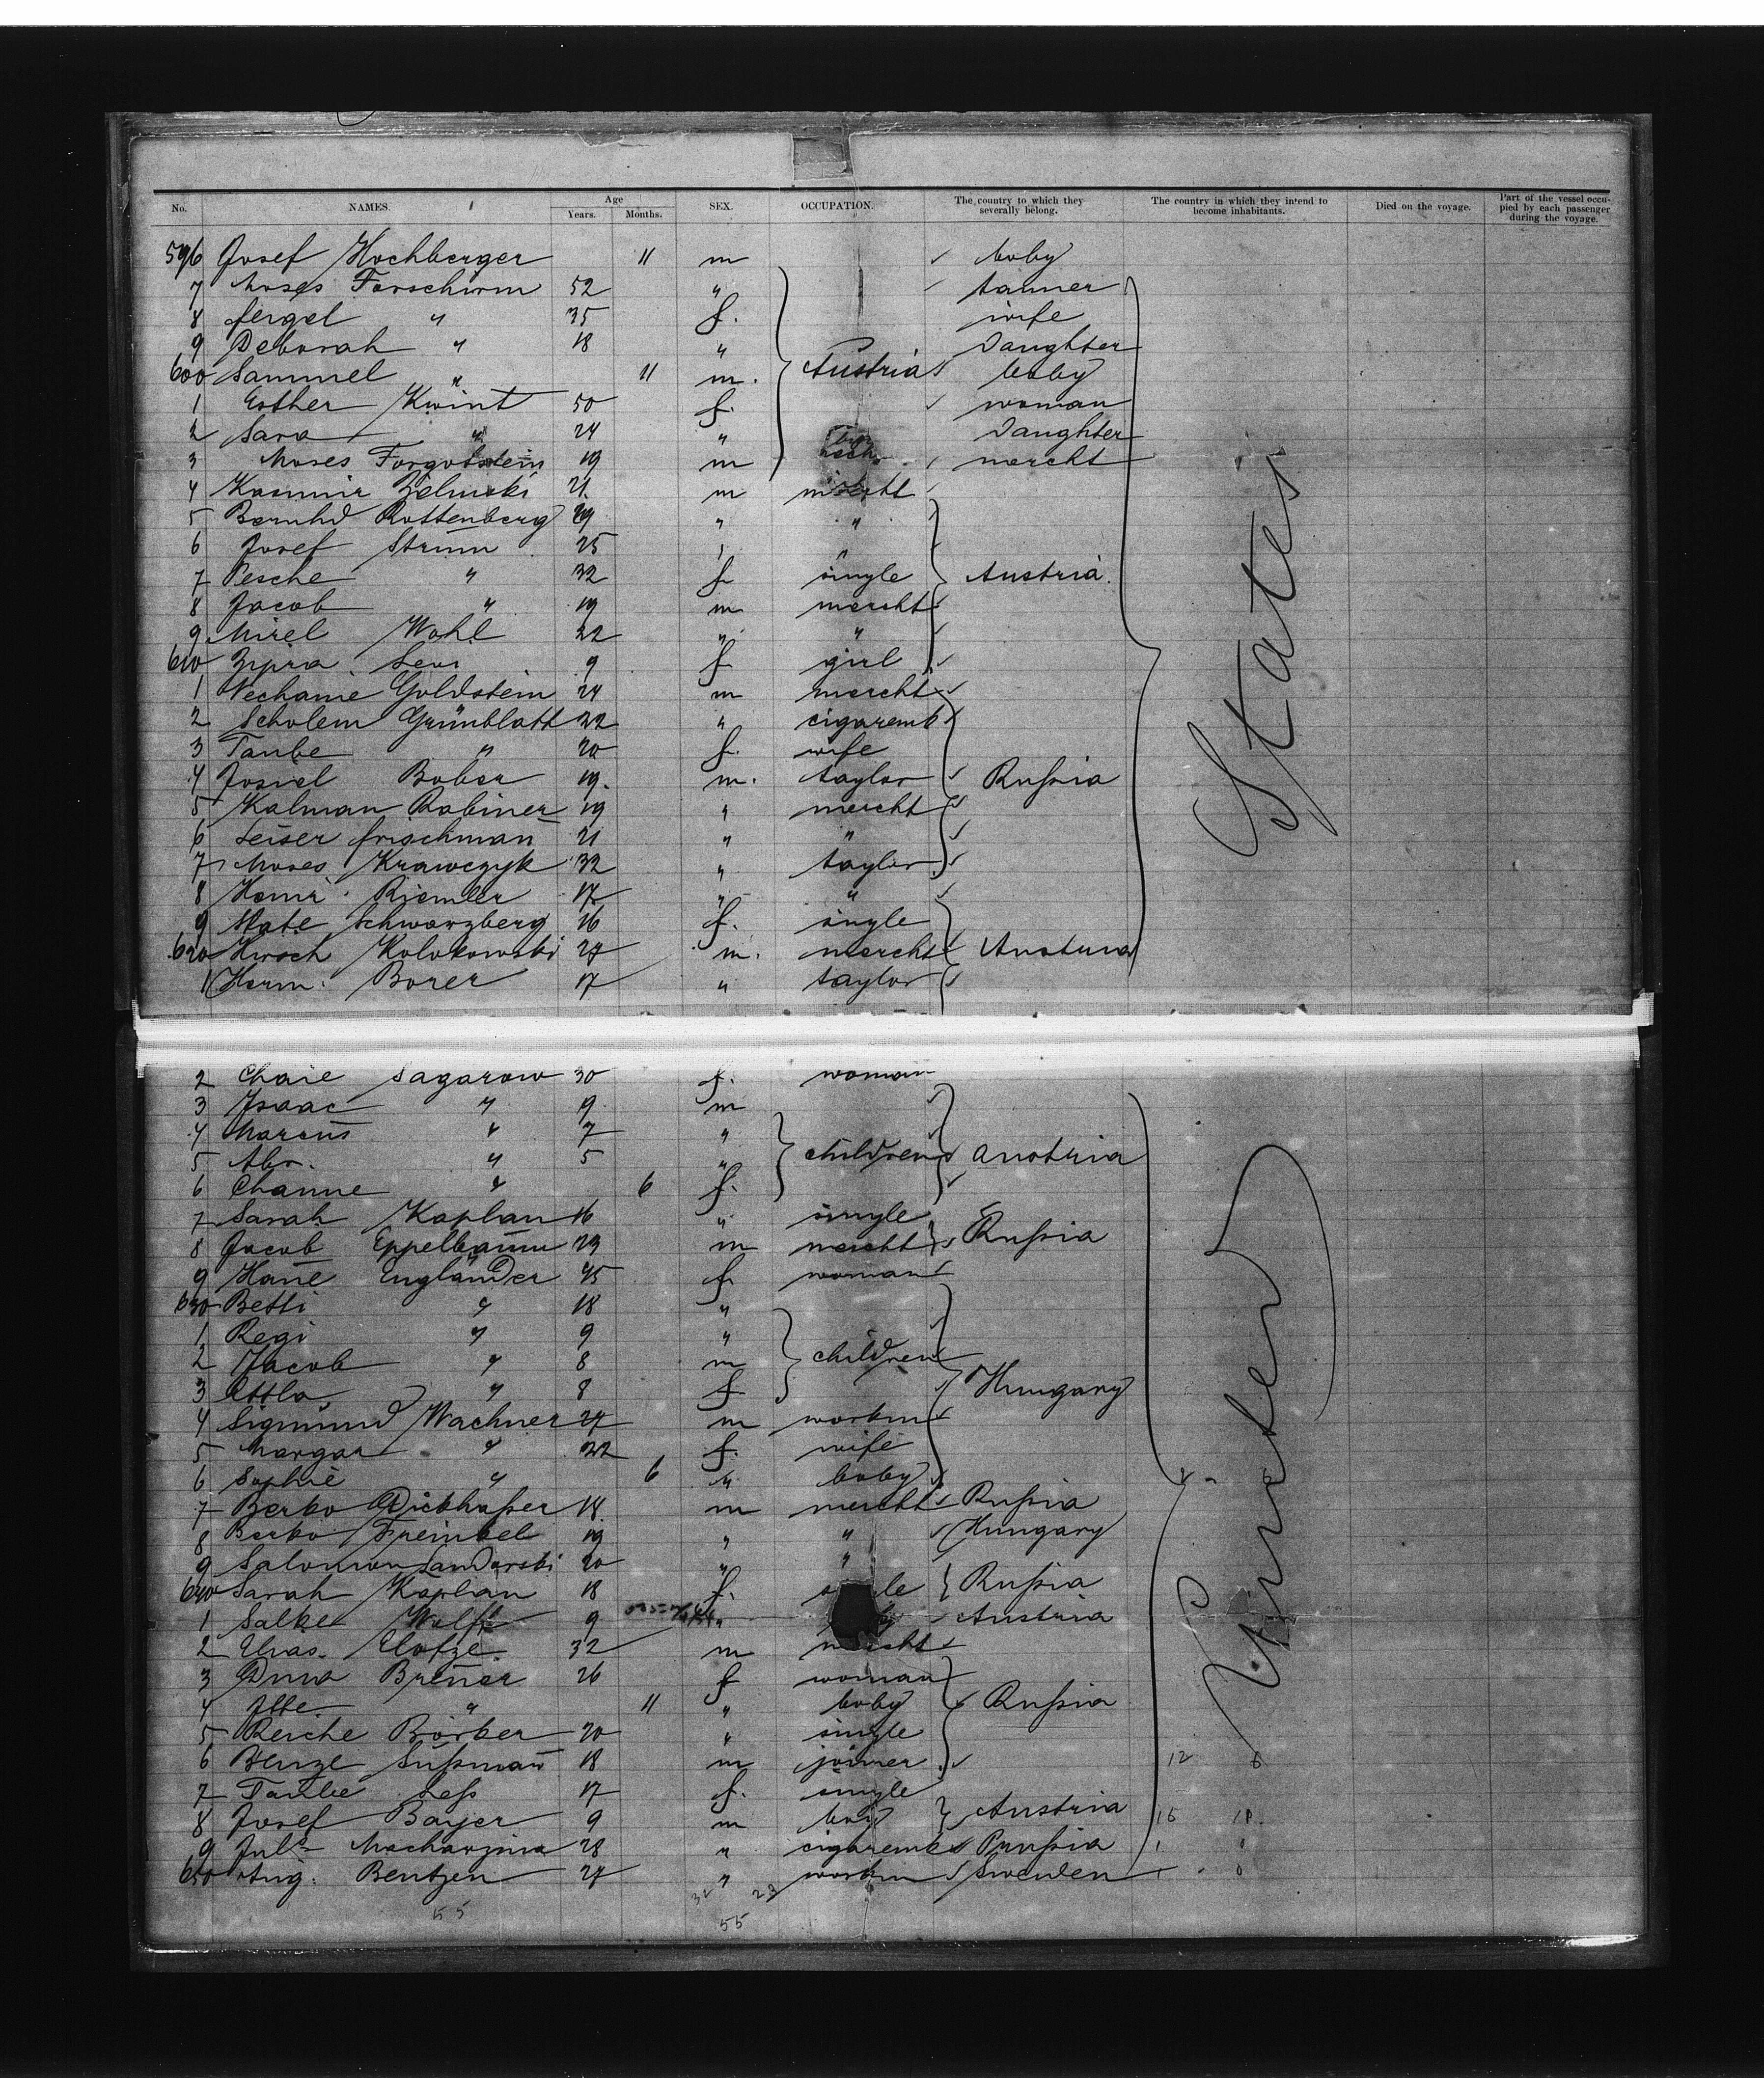 No. NAMES. Age Years. Months. SEX. OCCUPATION. The country to which they severally belong. The country in which they intend to become inhabitants. Died on the voyage. Part of the vessel occupied by each passenger during the voyage.
596 Josef Hochberger 11 m baby
7 Moses Forschirm 52 " tanner
8 fergel " 35 f. wife
9 Deborah " 18 " Daughter
600 Sammel " 11 m. Austria baby
1 Esther Kwint 50 f. woman
2 Sara " 24 " Daughter
3 Moses Forgotstein 19 m mercht
4 Kasimir Zelinski 21. m mercht
5 Bernhd Rottenberg 29 " "
6 Josef Strum 25 " "
7 Pesche " 32 f single Austria.
8 Jacob " 19 m mercht
9 Mirel Wohl 22 " "
610 Zipra Levi 9 f girl
1 Nechame Goldstein 24 m mercht
2 Scholem Grünblatt 22 " cigaremk
3 Taube " 20 f. wife
4 Josiel Bober 19. m. taylor Rußia
5 Kalman Rabiner 19 " mercht
6 Leiser frischman 21 " "
7 Moses Krawczyk 32 " taylor
8 Riemler 17 " "
9 Schwarzberg 16 f. single
620 Hirsch Kolokowski 27 m. mercht Austria
1 Herm. Borer 17 " taylor
States
2 Chaie Sagarow 30 f. woman
3 Isaac " 9 m
4 Marcus " 7 "
5 Abr. " 5 " children Austria
6 Channe " 6 f.
7 Sarah Kaplan 16 " single
8 Jacob Eppelbaum 29 m mercht Rußia
9 Hane Engländer 45 f woman
630 Betti " 18 "
1 Regi " 9 "
2 Jacob " 8 m children
3 " 8 f Hungary
4 Sigmund Wachner 27 m workm
5 Margar " 22 f. wife
6 Sophie " 6 " baby
7 Berko 18. m mercht Rußia
8 Berko Freimkel 19 " " Hungary
9 Salomon Sandarski 20 " "
640 Sarah Kaplan 18 f. Rußia
1 Salke Wolff 9 " Austria
2 32 m mercht
3 Brener 26 f woman
4 " 11 " baby Rußia
5 Reiche Börber 20 " single
6 Benze Sußman 18 m joiner 12 6
7 Taube Leß 17 f. single
8 Josef Bayer 9 m boy Austria
9 Juls 28 " cigaremk Prußia
650 Aug. Bentzen 27 " workm Sweden
United
32 23
55 55